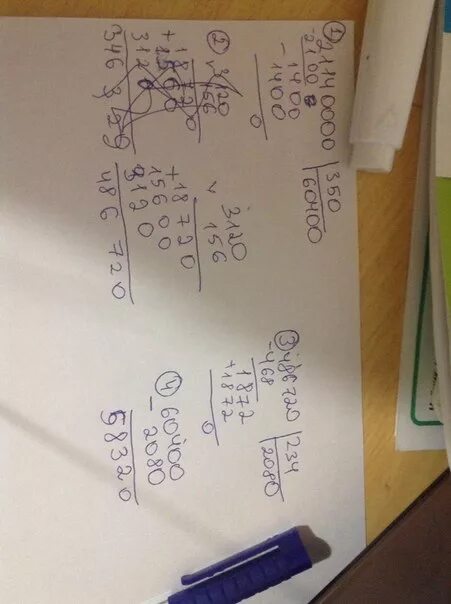 ① 21140000 | 350
-2100 60400
-1400
1400
0
②
3120
156
+18720
312
346
3120
156
+18720
15600
3120
486720
③ 486720 | 234
-468 2080
1872
+1872
0
④ 60400
- 2080
58320